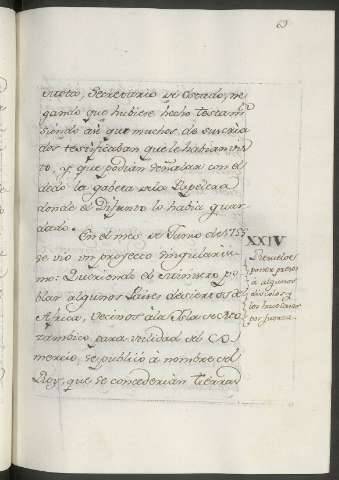 63
Secretario de Estado, ne
gando que hubiese hecho testam.
siendo asi que muchos de sus cria
dos testificaban que le habian vis
to, y que podian señalar con el
dedo la gabeta de la Papelera
donde el Difunto lo habia guar
dado.
En el mes de Junio de 1755
se vio un proyecto singularisi
mo: Queriendo el Ministro po
blar algunos Paises desiertos de
Africa, vecinos a la Isla de Mo
zambico, para utilidad del Co
mercio, se publicó à nombre del
Rey, que se concederian tierras
XXIV
poner presos
a algunos
por fuerza.